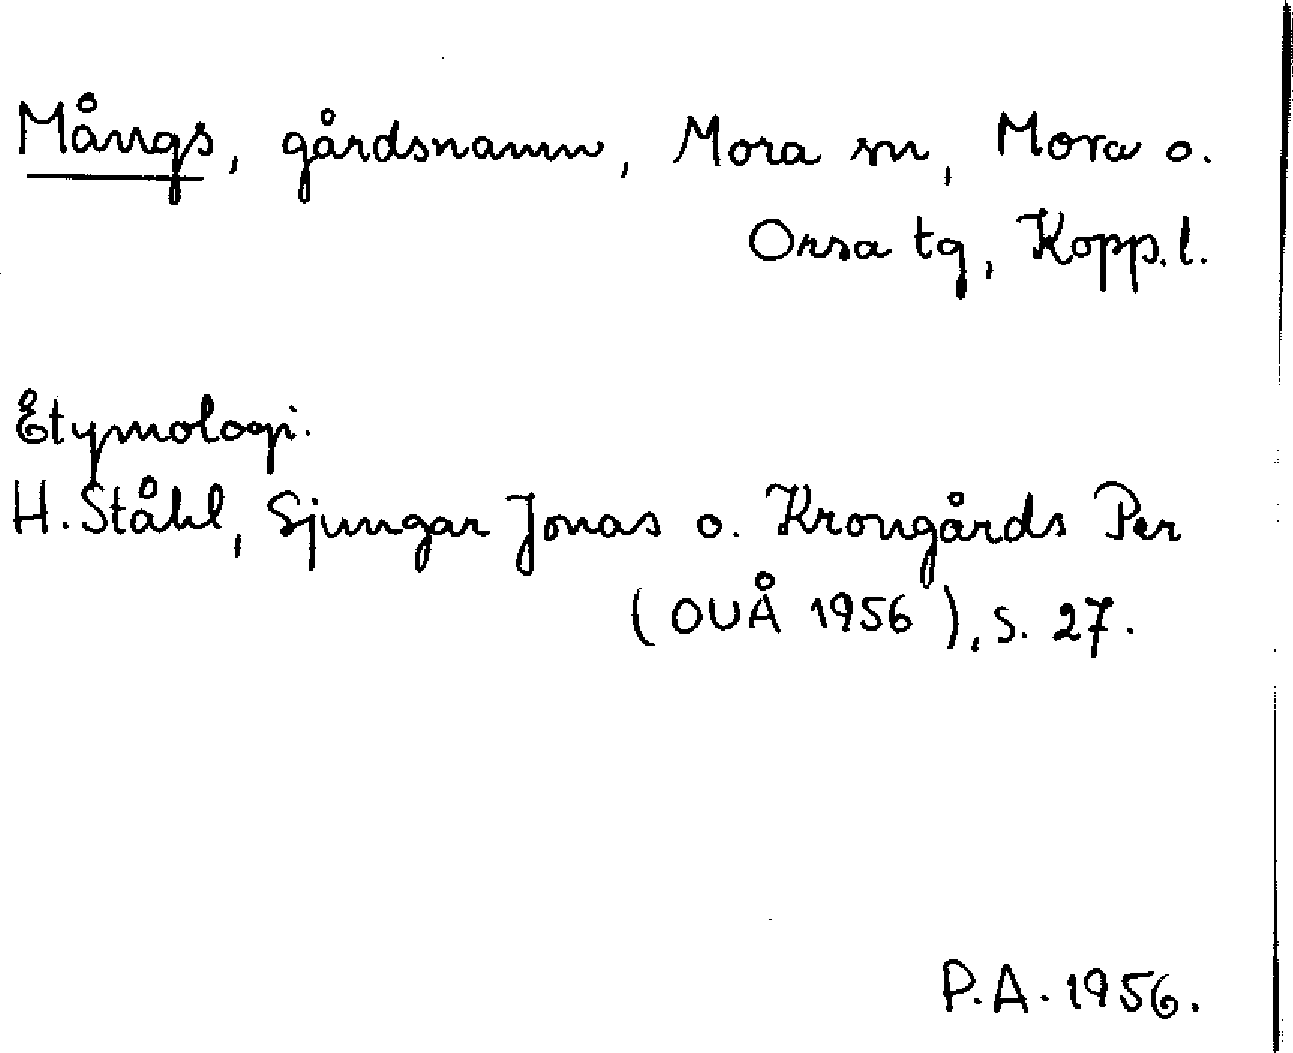 Mångs, gårdsnamn, Mora sn, Mora o.
Orsa tg, Kopp.l.
Etymologi.
H. Ståhl, Sjungar Jonas o. Krongårds Per
(OUÅ 1956), s. 27.
P.A. 1956.